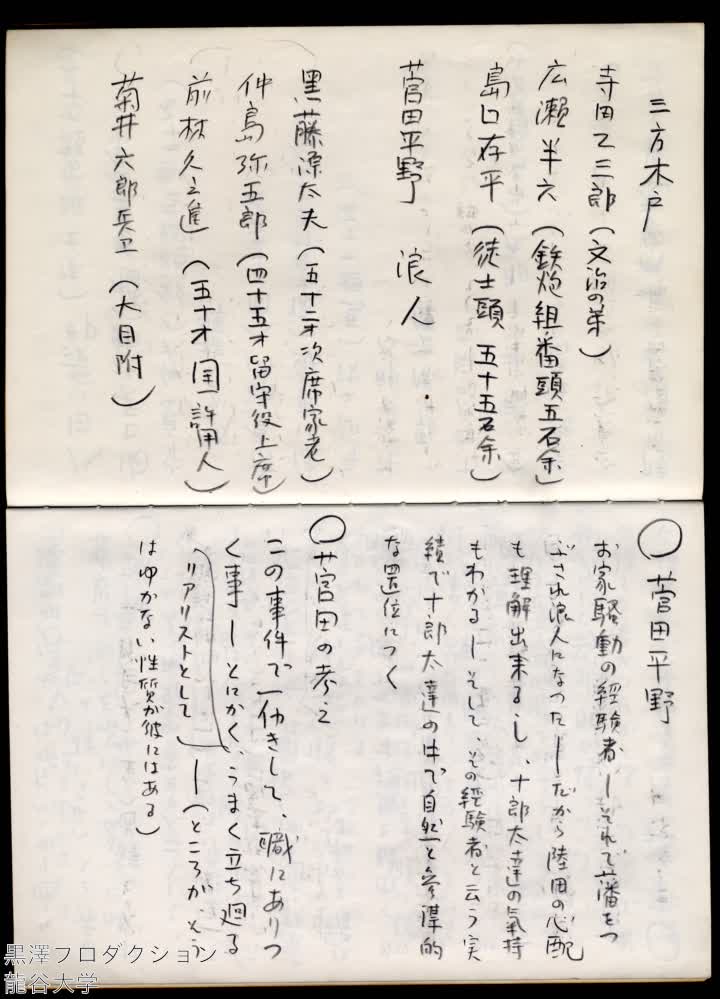 三方木戸
寺田乙三郎(文治の弟)
広瀬半六(鉄炮組番頭五石余)
島口存平(徒士頭 五十五石余)
菅田平野 浪人.
黒藤源太夫(五十二才次席家老)
仲島弥五郎(四十五才留守役上席)
前林久之進(五十才国許用人)
菊井六郎兵卫(大目附)
○菅田平野
お家騒動の経験者―それで藩をつ
ぶされ浪人になった―だから陸田の心配
も理解出来るし、十郎太達の気持
もわかる―そして、その経験者と云う実
績で十郎太達の中で自然と参謀的
な置位につく
○菅田の考え
この事件で一働きして、職にありつ
く事―とにかく、うまく立ち廻る
(リアリストとして)―(ところがそう
はゆかない性質が彼にはある)
黒澤プロダクション
龍谷大学